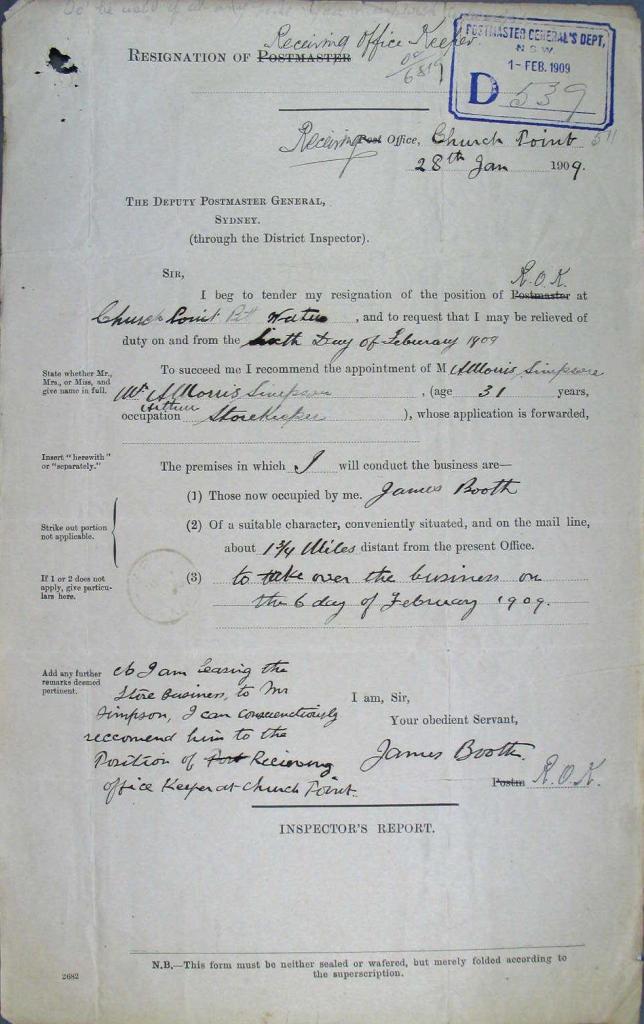 To be
Receiving Office Keeper
RESIGNATION OF POSTMASTER
POSTMASTER GENERAL'S DEPT,
N.S.W.
1-FEB.1909
D 539
Receiving Post Office, Church Point
28th Jan 1909.
THE DEPUTY POSTMASTER GENERAL,
SYDNEY.
(through the District Inspector).
SIR,
R.O.K.
I beg to tender my resignation of the position of Postmaster at
Church Point Pitt Water, and to request that I may be relieved of
duty on and from the Sixth Day of Feburary 1909
State whether Mr,
Mrs., or Miss, and
give name in full.
To succeed me I recommend the appointment of M A Morris Simpson
Mr A Morris Simpson, (age 31 years,
Arthur
occupation Storekeeper), whose application is forwarded,
Insert "herewith"
or "separately."
The premises in which I will conduct the business are—
(1) Those now occupied by me. James Booth
Strike out portion
not applicable.
(2) Of a suitable character, conveniently situated, and on the mail line,
about 1 3/4 Miles distant from the present Office.
If 1 or 2 does not
apply, give particu-
lars here.
(3) to take over the business on
the 6 day of February 1909.
Add any further
remarks deemed
pertinent.
I am leasing the
Store Business, to Mr
Simpson, I can conscienctiously
reccomend him to the
Position of Post Recieving
office Keeper at Church Point.
I am, Sir,
Your obedient Servant,
James Booth.
Postm R.O.K.
INSPECTOR'S REPORT.
N.B.—This form must be neither sealed or wafered, but merely folded according to
the superscription.
2682